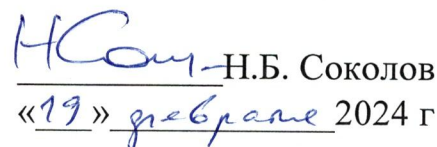 Н.Б. Соколов
«19» февраля 2024 г